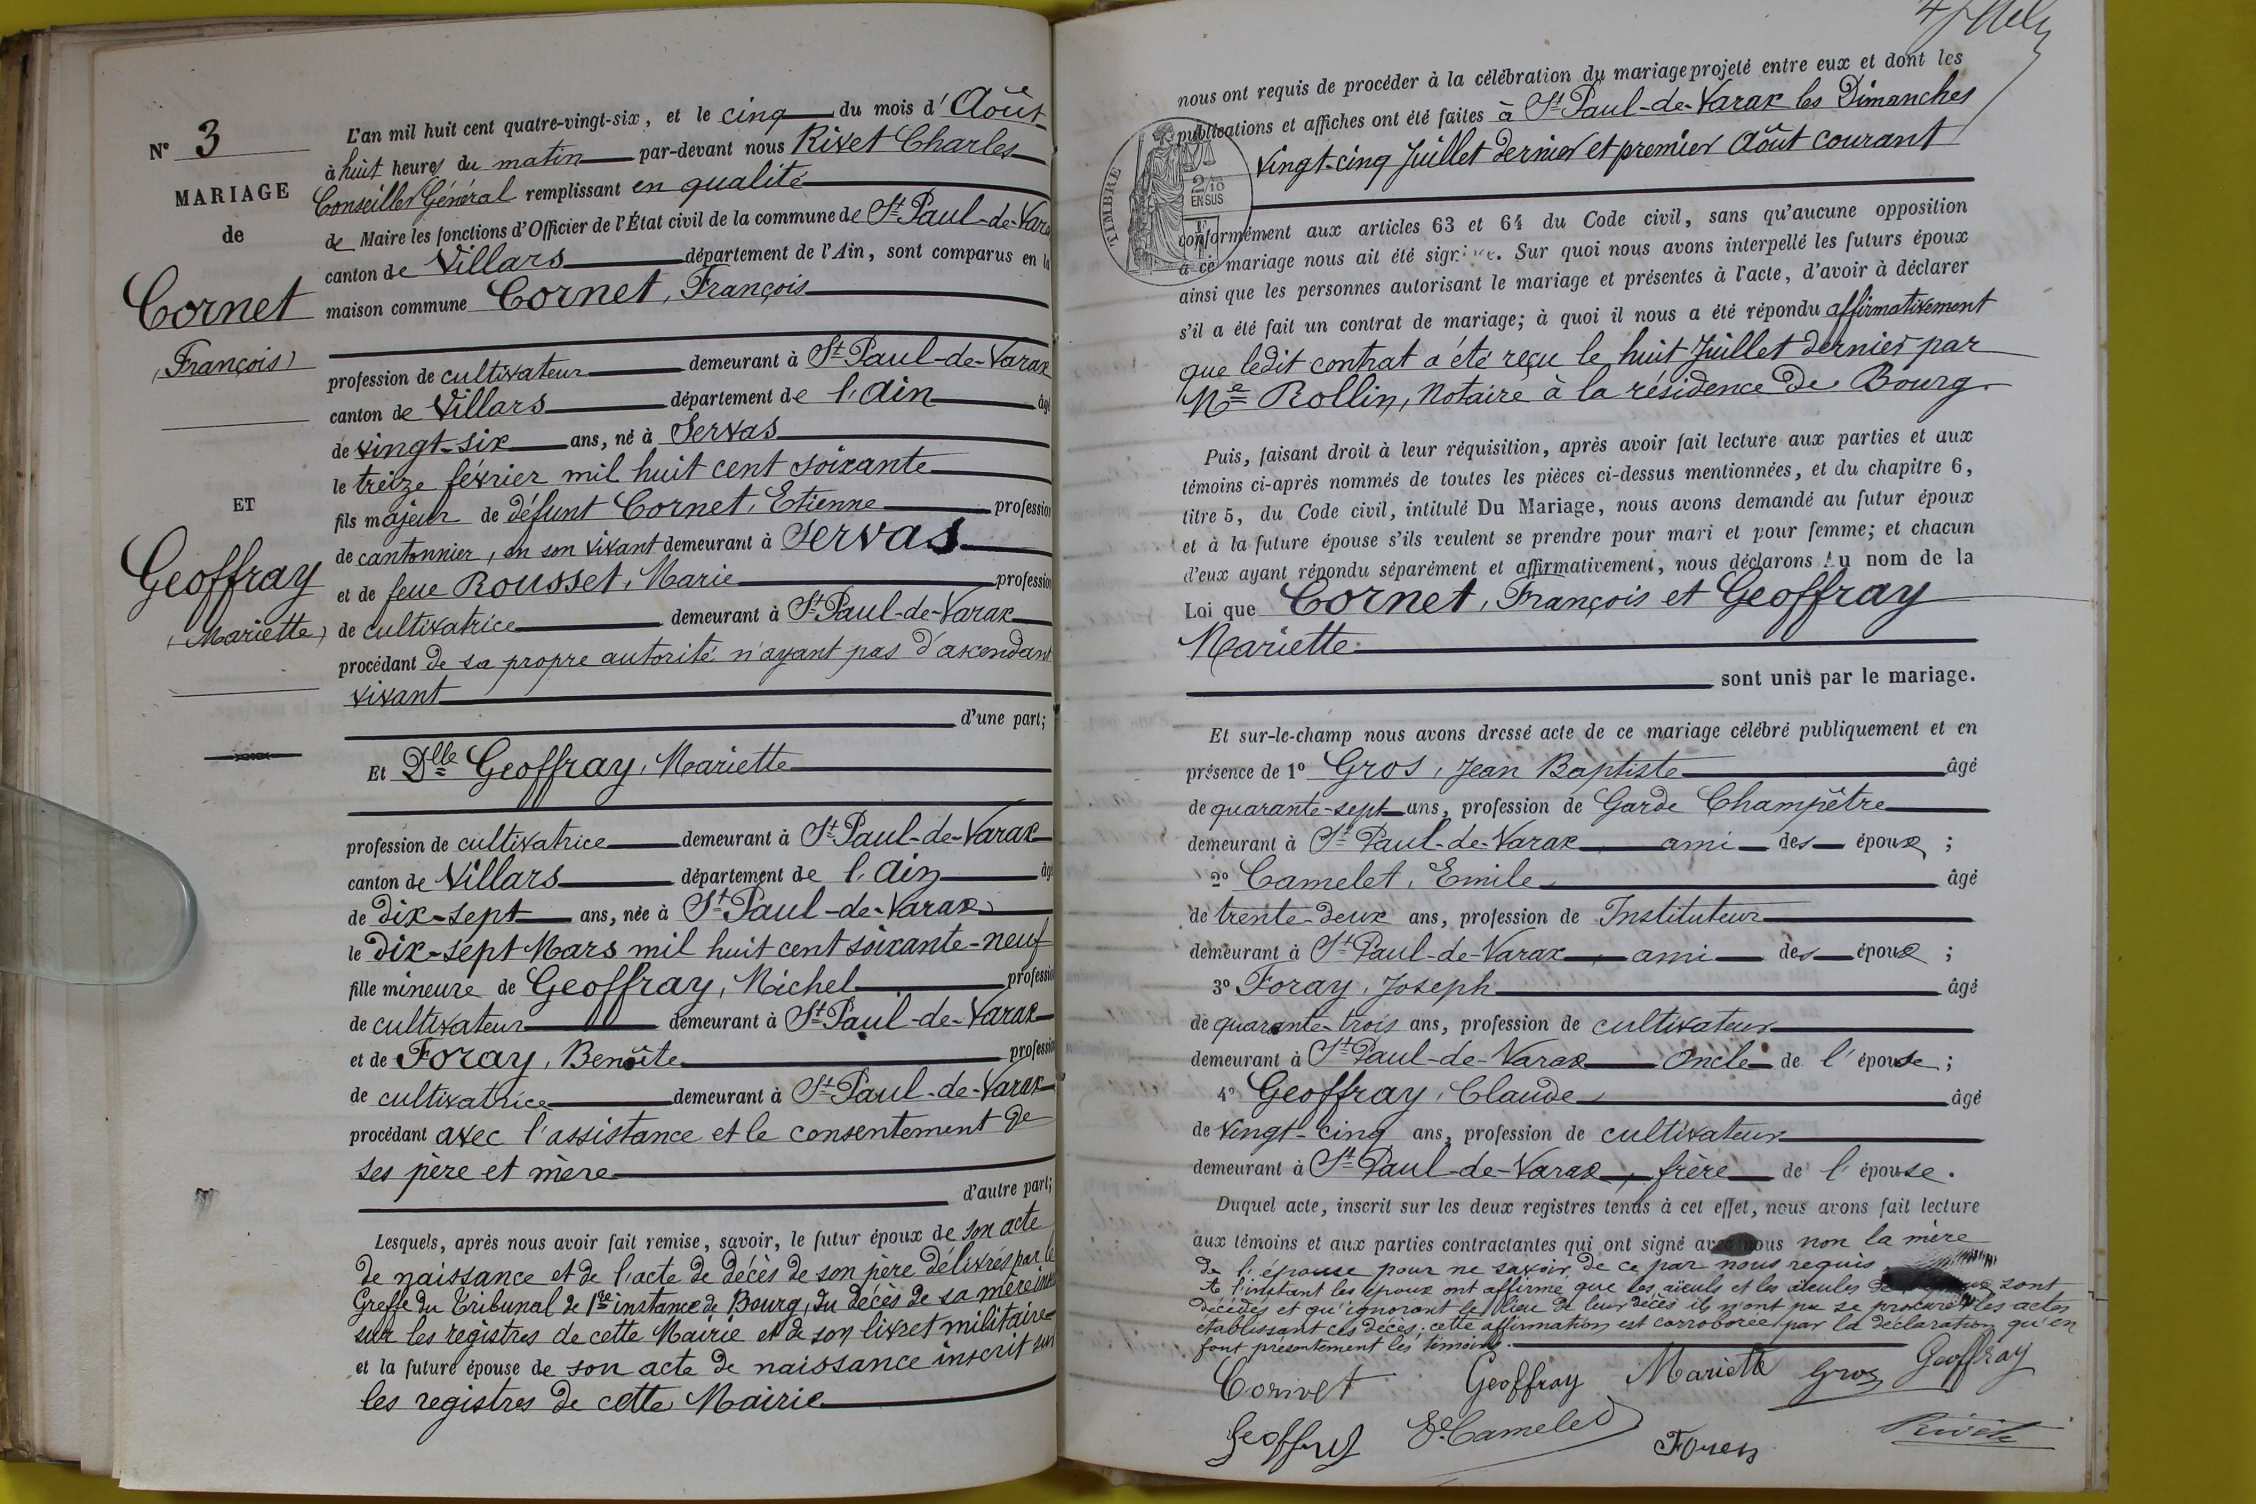 N° 3
MARIAGE
de
Cornet
(François)
ET
Geoffray
(Mariette)
L'an mil huit cent quatre-vingt-six, et le cinq du mois d'Août
à huit heures du matin par-devant nous Rivet Charles
Conseiller Général remplissant en qualité
de Maire les fonctions d'Officier de l'État civil de la commune de St Paul-de-Varax
canton de Villars département de l'Ain, sont comparus en la
maison commune Cornet, François
profession de cultivateur demeurant à St Paul-de-Varax
canton de Villars département de l'Ain âgé
de vingt-six ans, né à Servas
le treize février mil huit cent soixante
fils majeur de défunt Cornet, Etienne profession
de cantonnier, en son vivant demeurant à Servas
et de feue Rousset, Marie profession
de cultivatrice demeurant à St Paul-de-Varax
procédant de sa propre autorité n'ayant pas d'ascendant
vivant
d'une part;
Et Dlle Geoffray, Mariette
profession de cultivatrice demeurant à St Paul-de-Varax
canton de Villars département de l'Ain âgé
de dix-sept ans, née à St Paul-de-Varax
le dix-sept Mars mil huit cent soixante-neuf
fille mineure de Geoffray, Michel profession
de cultivateur demeurant à St Paul-de-Varax
et de Foray, Benoîte profession
de cultivatrice demeurant à St Paul-de-Varax
procédant avec l'assistance et le consentement de
ses père et mère
d'autre part;
Lesquels, après nous avoir fait remise, savoir, le futur époux de son acte
de naissance et de l'acte de décès de son père délivrés par le
Greffe du Tribunal de 1re instance de Bourg, du décès de sa mère inscrit
sur les registres de cette Mairie et de son livret militaire
et la future épouse de son acte de naissance inscrit sur
les registres de cette Mairie
nous ont requis de procéder à la célébration du mariage projeté entre eux et dont les
publications et affiches ont été faites à St Paul-de-Varax les Dimanches
vingt-cinq Juillet dernier et premier Août courant
TIMBRE
2/10
EN SUS
conformément aux articles 63 et 64 du Code civil, sans qu'aucune opposition
à ce mariage nous ait été signifiée. Sur quoi nous avons interpellé les futurs époux
ainsi que les personnes autorisant le mariage et présentes à l'acte, d'avoir à déclarer
s'il a été fait un contrat de mariage; à quoi il nous a été répondu affirmativement
que ledit contrat a été reçu le huit Juillet dernier par
Me Rollin, Notaire à la résidence de Bourg.
Puis, faisant droit à leur réquisition, après avoir fait lecture aux parties et aux
témoins ci-après nommés de toutes les pièces ci-dessus mentionnées, et du chapitre 6,
titre 5, du Code civil, intitulé Du Mariage, nous avons demandé au futur époux
et à la future épouse s'ils veulent se prendre pour mari et pour femme; et chacun
d'eux ayant répondu séparément et affirmativement, nous déclarons Au nom de la
Loi que Cornet, François et Geoffray
Mariette
sont unis par le mariage.
Et sur-le-champ nous avons dressé acte de ce mariage célébré publiquement et en
présence de 1° Gros, Jean Baptiste âgé
de quarante-sept ans, profession de Garde Champêtre
demeurant à St Paul-de-Varax, ami des époux;
2° Camelet, Emile âgé
de trente-deux ans, profession de Instituteur
demeurant à St Paul-de-Varax, ami des époux;
3° Foray, Joseph âgé
de quarante-trois ans, profession de cultivateur
demeurant à St Paul-de-Varax oncle de l'épouse;
4° Geoffray, Claude âgé
de vingt-cinq ans, profession de cultivateur
demeurant à St Paul-de-Varax, frère de l'épouse.
Duquel acte, inscrit sur les deux registres tenus à cet effet, nous avons fait lecture
aux témoins et aux parties contractantes qui ont signé avec nous non la mère
de l'épouse pour ne savoir de ce par nous requis
et à l'instant les époux ont affirmé que les aïeuls et les aïeules sont
décédés et qu'ignorant le lieu de leur décès ils n'ont pu se procurer les actes
établissant ces décès; cette affirmation est corroborée par la déclaration qu'en
font présentement les témoins.
Cornet Geoffray Mariette Gros Geoffray
Geoffray E. Camelet Foray Rivet